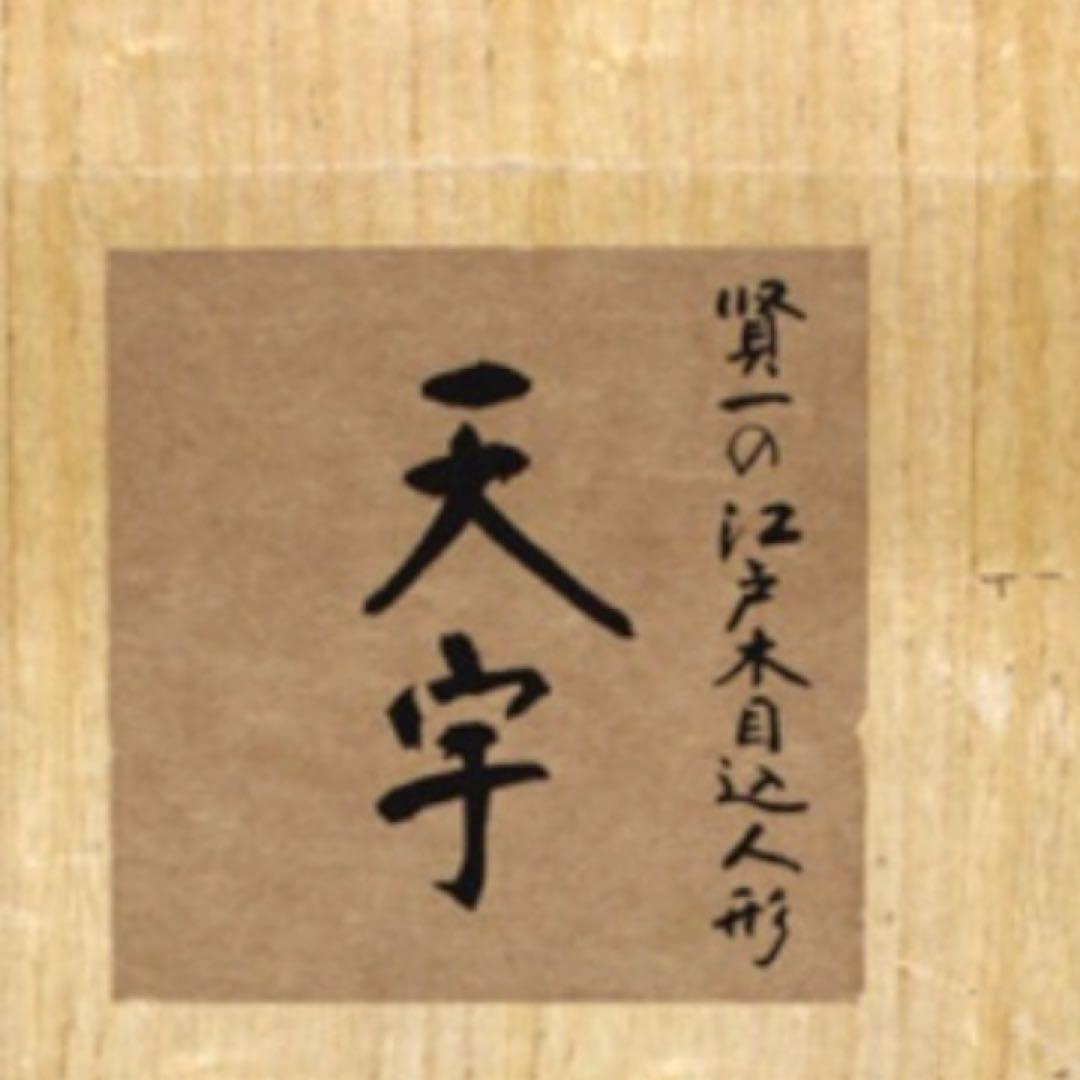 賢一の江戸木目込人形
天宇